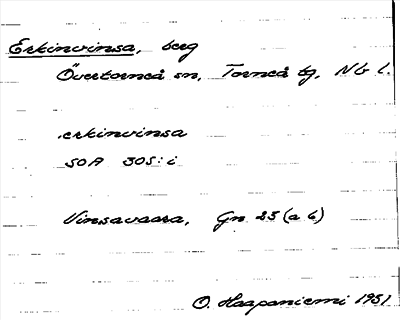 Erkinvinsa, berg
Övertorneå sn, Torneå tg, Nb l.
.erkinvinsa
SOA 305:i
Vinsavaara, Gn 25 (a 6)
O. Haapaniemi 1931